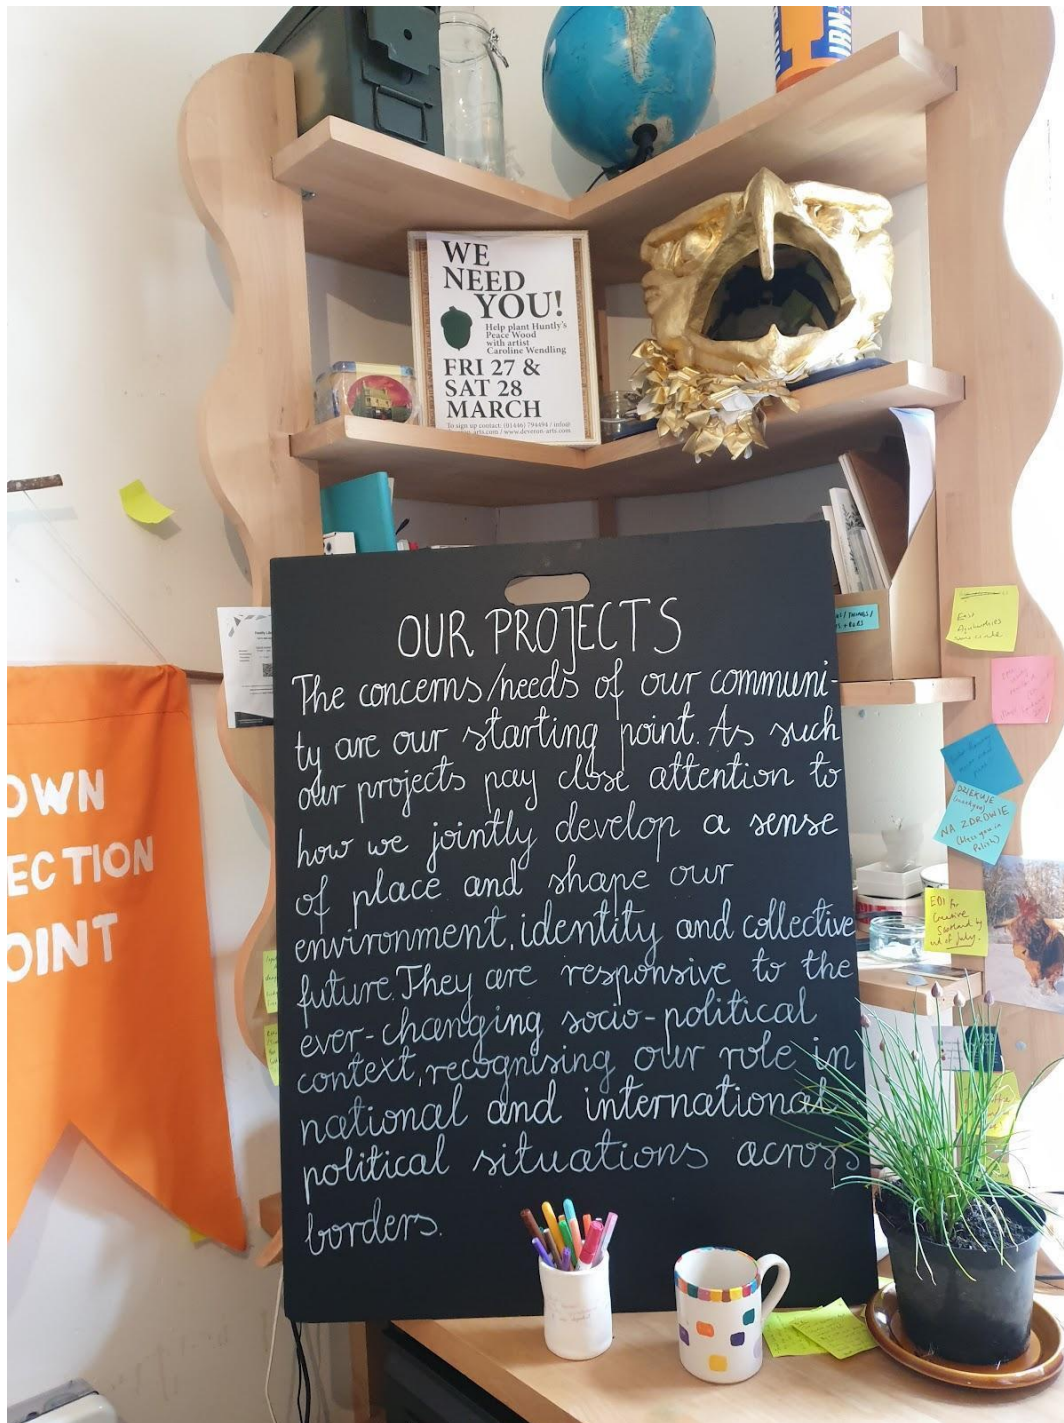 IRN
WE
NEED
YOU!
Help plant Huntly's
Peace Wood
with artist
Caroline Wendling
FRI 27 &
SAT 28
MARCH
To sign up contact: (01466) 794494 / info@
www.deveron-arts.com
OUR PROJECTS
The concerns/needs of our communi-
ty are our starting point. As such
our projects pay close attention to
how we jointly develop a sense
of place and shape our
environment, identity and collective
future. They are responsive to the
ever-changing socio-political
context, recognising our role in
national and international
political situations across
borders.
OWN
ECTION
OINT
DZIĘKUJE
NA ZDROWIE
(bless you in
Polish)
EDI for
Creative
Scotland by
end of July.